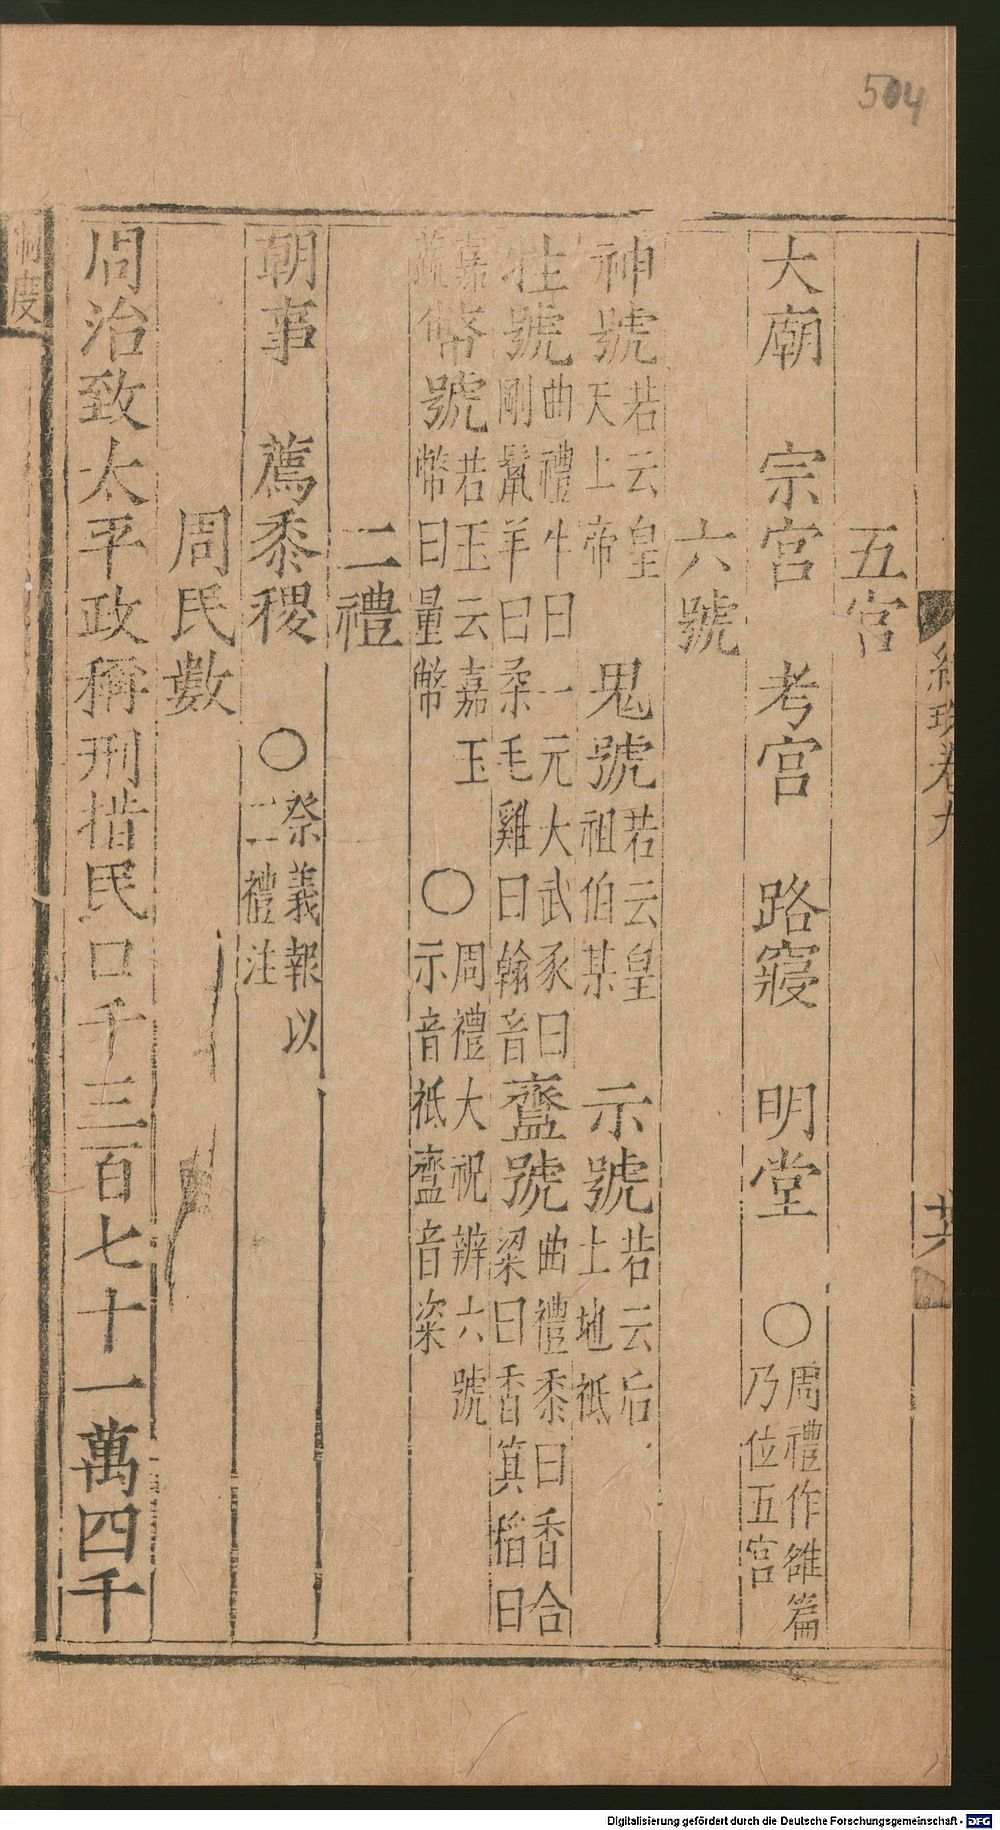 504
五宮
大廟　宗宮　考宮　路寢　明堂　〇周禮作雒篇
乃位五宮
六號
神號若云皇
天上帝　鬼號若云皇
祖伯某　示號若云后
土地祗
牲號曲禮牛曰一元大武豕曰
剛鬣羊曰柔毛雞曰翰音齍號曲禮黍曰香合
粱曰香萁稻曰
嘉
蔬幣號若玉云嘉玉
幣曰量幣　〇周禮大祝辨六號
示音祗齍音粢
二禮
朝事　薦黍稷　〇祭義報以
二禮注
周民數
周治致太平政稱刑措民口千三百七十一萬四千
卷九
制度
Digitalisierung gefördert durch die Deutsche Forschungsgemeinschaft - DFG